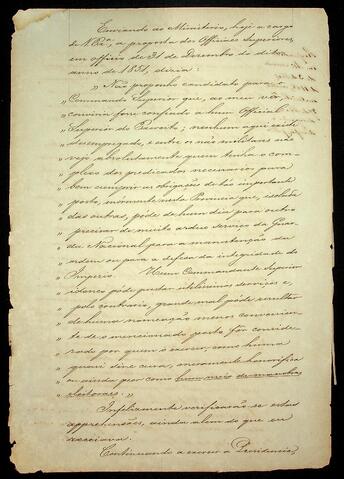 Enviando ao Ministerio, hoje a cargo
de V. Exª, a proposta dos Officiaes Superiores,
em officio de 31 de Dezembro do dito
anno de 1851, dizia:
" Não proponho candidato para o
" Commando Superior que, ao meu vêr,
" conviria fosse confiado a hum Official
" Superior do Exercito; nenhum aqui existe
" desempregado, e entre os não militares não
" vejo absolutamente quem tenha o com-
" plexo dos predicados necessarios para
" bem cumprir as obrigações de tão importante
" posto, mórmente nesta Provincia que, isolada
" das outras, póde de hum dia para outro
" precisar de muito arduo serviço da Guar-
" da Nacional para a manutenção da
" ordem ou para a defesa da integridade do
" Imperio. Hum Commandante Superior
" idoneo póde prestar utilissimos serviços e,
" pelo contrario, grande mal póde resultar
" de huma nomeação menos convenien-
" te ou se o mencionado posto for conside-
" rado por quem o exercer, como huma
" quasi sine cura, meramente honorifica
" ou ainda peor como hum meio de manobras
" eleitoraes. "
Infelizmente verificarão-se estas
apprehensões, ainda alem do que eu
receiava.
Continuando a exercer a Presidencia,